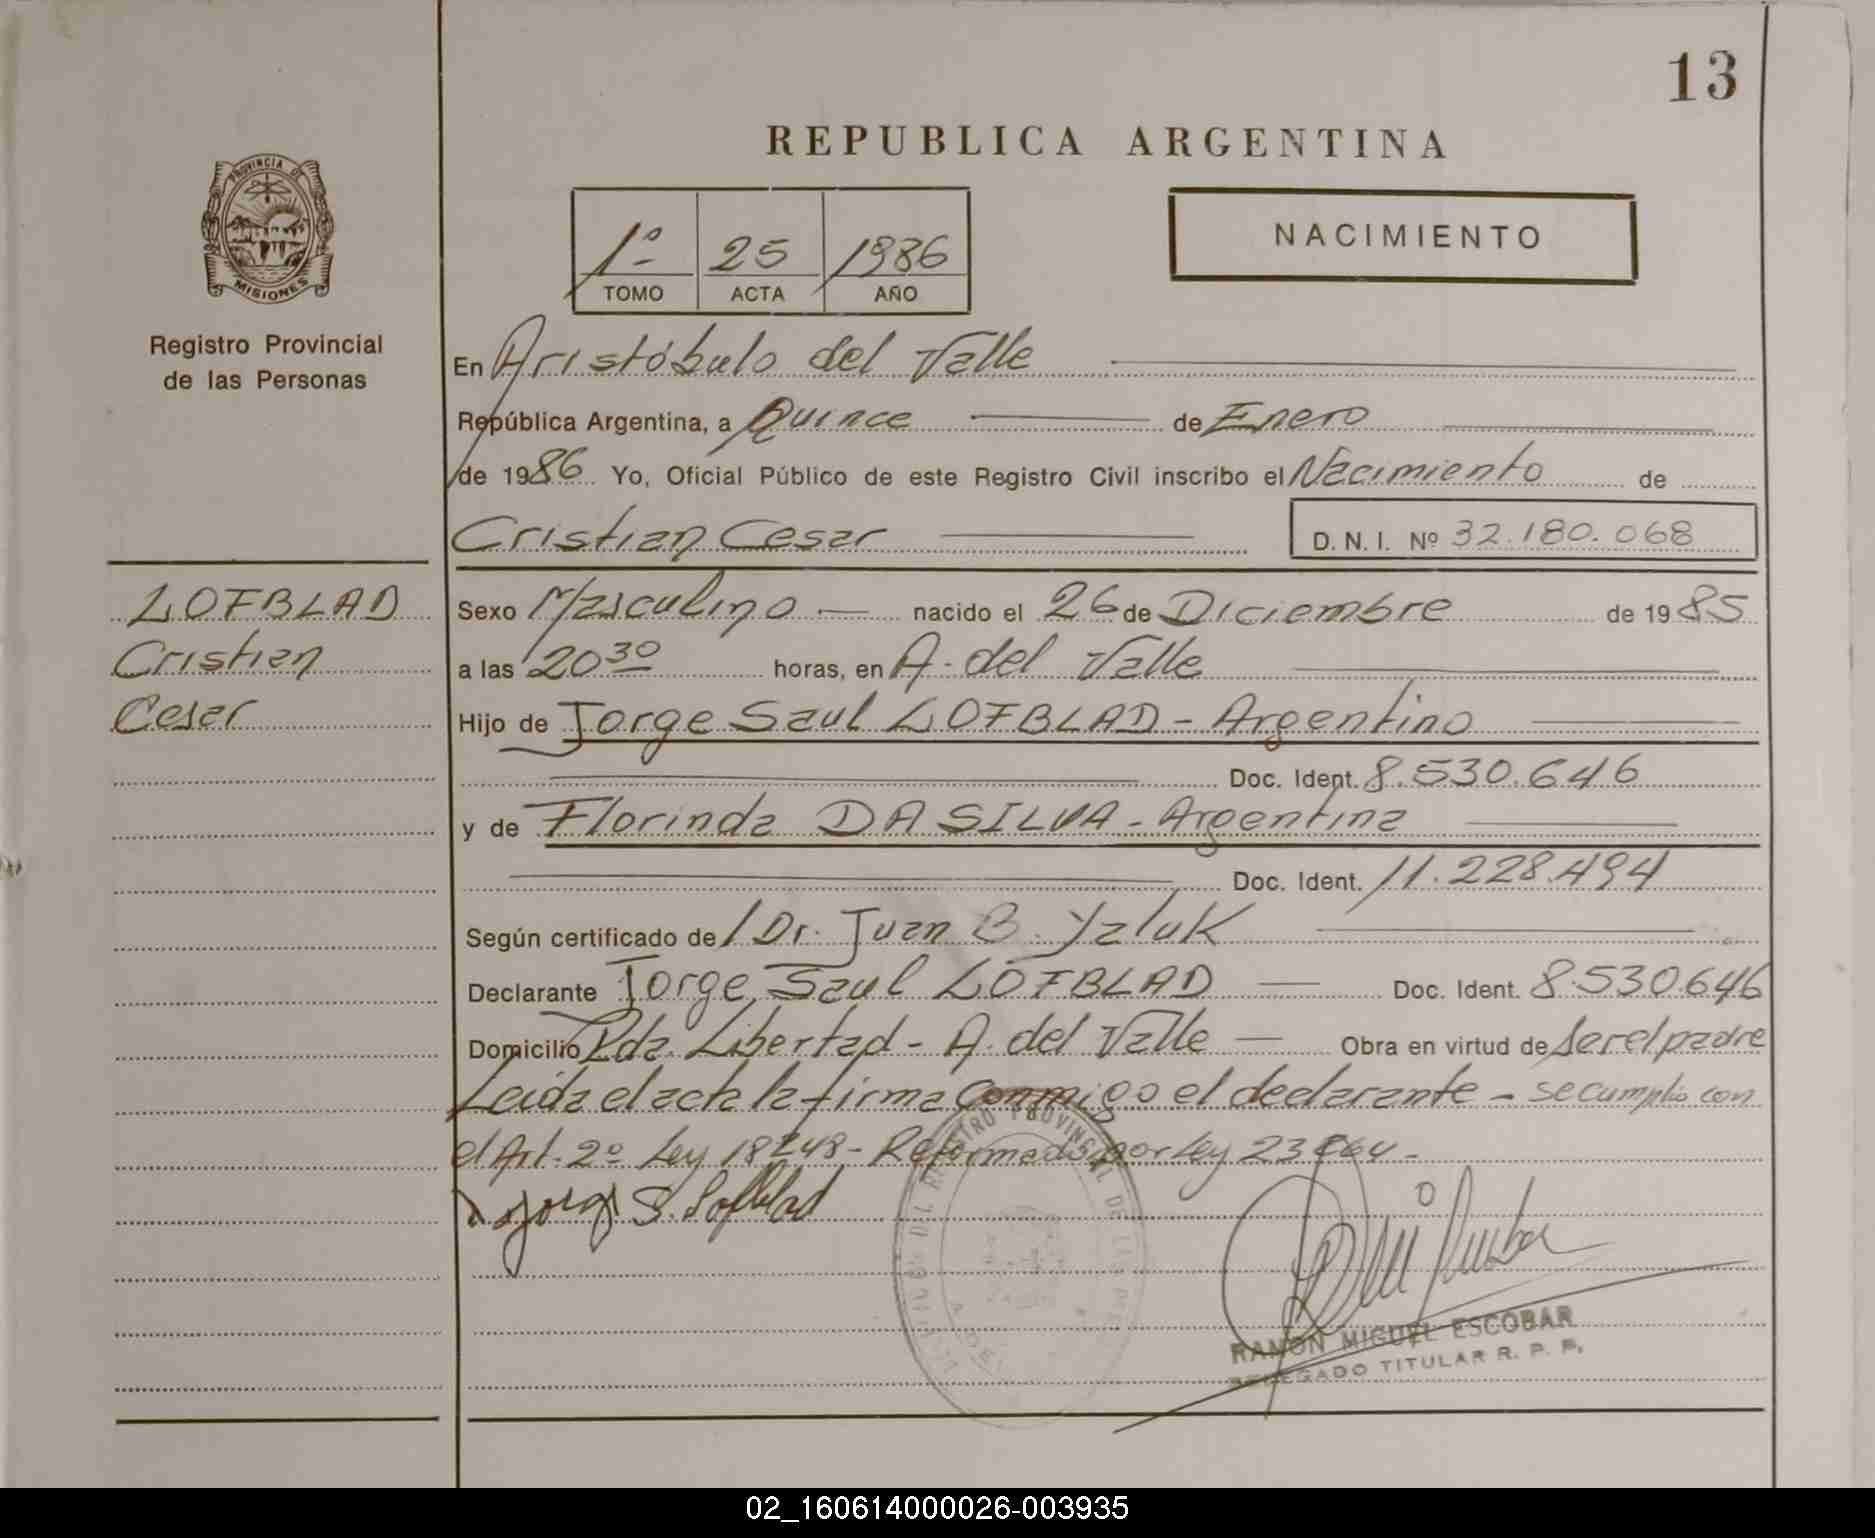 13
REPUBLICA ARGENTINA
PROVINCIA DE
MISIONES
Registro Provincial
de las Personas
1º 25 1986
TOMO ACTA AÑO
NACIMIENTO
En Aristóbulo del Valle
República Argentina, a Quince de Enero
de 1986. Yo, Oficial Público de este Registro Civil inscribo el Nacimiento de
Cristian Cesar D. N. I. Nº 32.180.068
LOFBLAD
Cristian
Cesar
Sexo Masculino nacido el 26 de Diciembre de 1985
a las 20 30 horas, en A. del Valle
Hijo de Jorge Saul LOFBLAD - Argentino
Doc. Ident. 8.530.646
y de Florinda DA SILVA - Argentina
Doc. Ident. 11.228.494
Según certificado de / Dr. Juan B. Yaluk
Declarante Jorge Saul LOFBLAD Doc. Ident. 8.530.646
Domicilio Pda. Libertad - A. del Valle Obra en virtud de ser el padre
Leida el acta la firma conmigo el declarante - se cumplio con
el Art. 2º Ley 18248 - Reformado por Ley
Jorge S. Lofblad
REGISTRO PROVINCIAL DE LAS
RAMON MIGUEL ESCOBAR
DELEGADO TITULAR R. P. P.
02_160614000026-003935